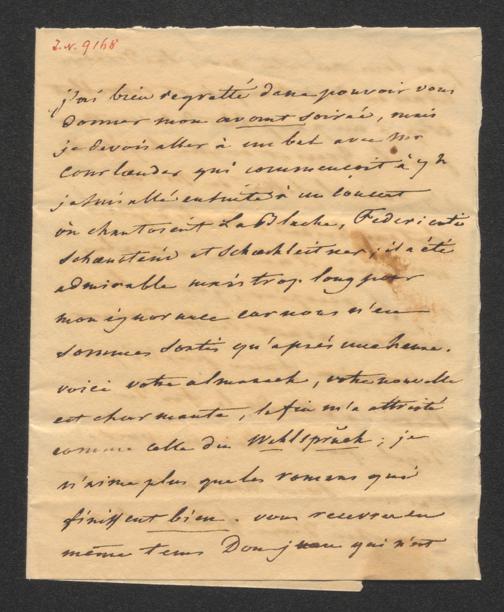 I.N. 9148
j'ai bien regretté dene pouvoir vous
donner mon avant soirée, mais
je devois aller à un bal avec Mr
Courlænder qui commencoit à 7 h
je suis allé ensuite à un Concert
où chantoient LaBlache, Federici etc
Schœnstein et Schœchleitner; il a été
admirable mais trop long pour
mon ignorance car nous n'en
sommes sortis qu'après une heure.
voici votre almanach, votre nouvelle
est charmante, la fin m'a attristé
comme celle du Wahlspruch; je
n'aime plus que les romans qui
finissent bien. vous recevrez en
même tems Don Juan qui n'est